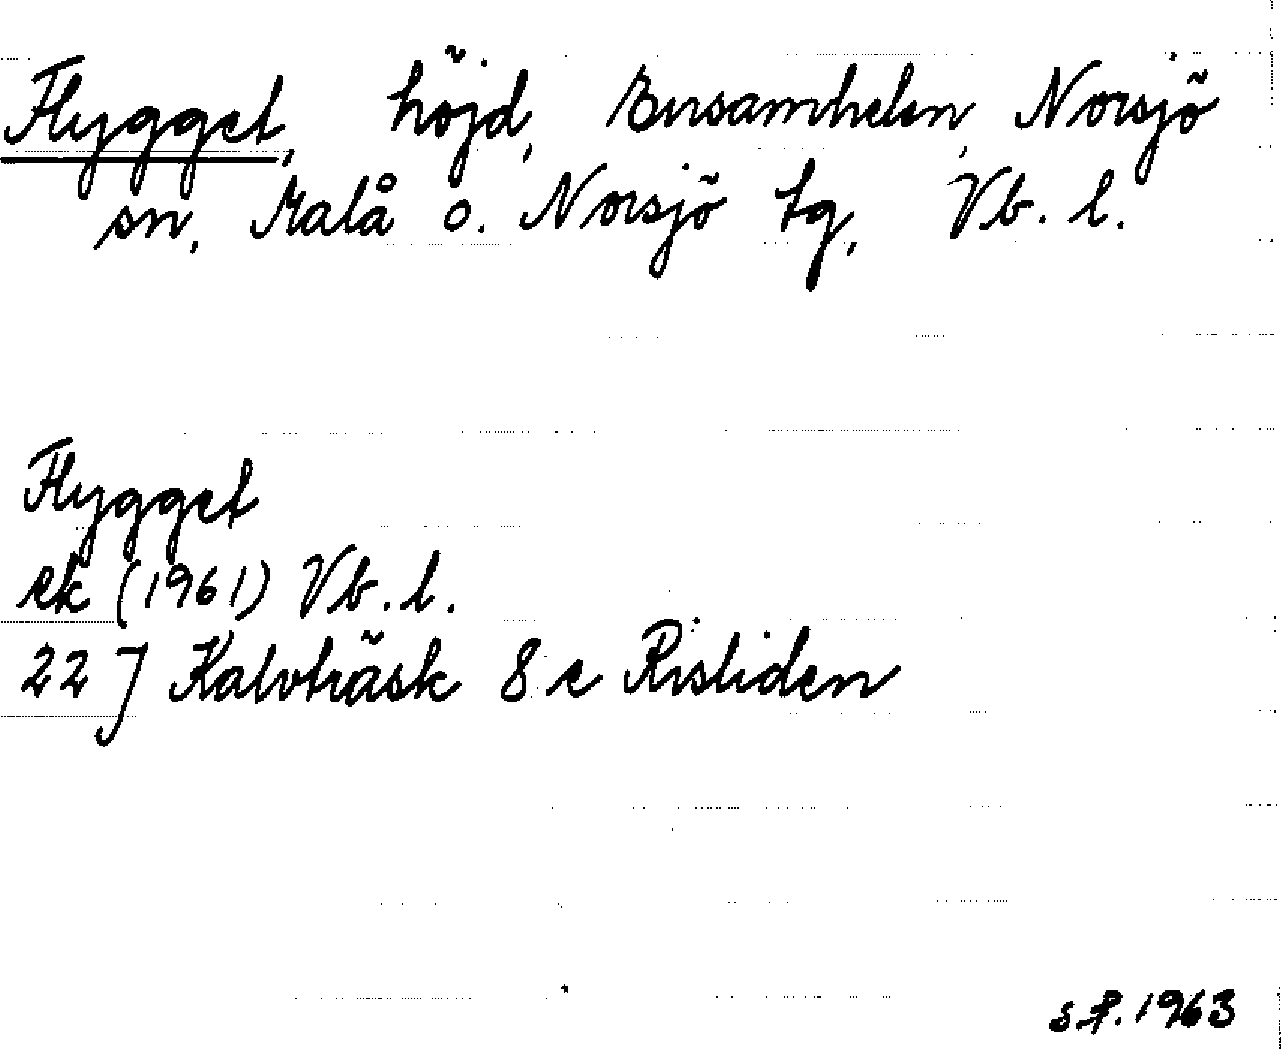 Flygget, höjd, Bursamhelen, Norsjö
sn, Malå o. Norsjö tg, Vb. l.
Flygget
ek (1961) Vb. l.
22 J Kalvträsk 8 e Risliden
s.f. 1963